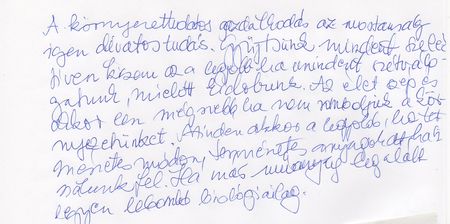 A környezettudatos gazdálkodás az mostanság
igen divatos tudás. Gyűjtsünk mindent szelek-
tíven hiszen az a legjobb ha mindent szétválo-
gatunk, mielőtt kidobunk. Az élet szép és
akkor lesz még szebb ha nem romboljuk a kör-
nyezetünket. Minden akkor a legjobb, ha ter-
mészetes módon, természetes anyagokat hasz-
nálunk fel. Ha más műanyag legalább
legyen lebomló biológiailag.